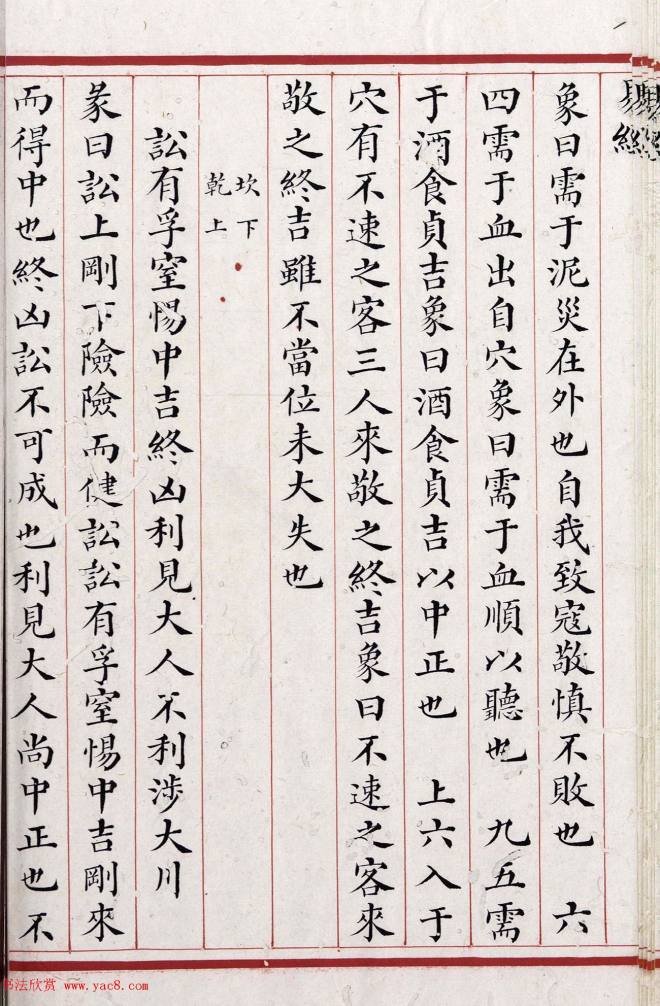 易經
象曰需于泥災在外也自我致寇敬慎不敗也 六
四需于血出自穴象曰需于血順以聽也 九五需
于酒食貞吉象曰酒食貞吉以中正也 上六入于
穴有不速之客三人來敬之終吉象曰不速之客來
敬之終吉雖不當位未大失也
坎下
乾上
訟有孚窒惕中吉終凶利見大人不利涉大川
彖曰訟上剛下險險而健訟訟有孚窒惕中吉剛來
而得中也終凶訟不可成也利見大人尚中正也不
书法欣赏 www.yac8.com